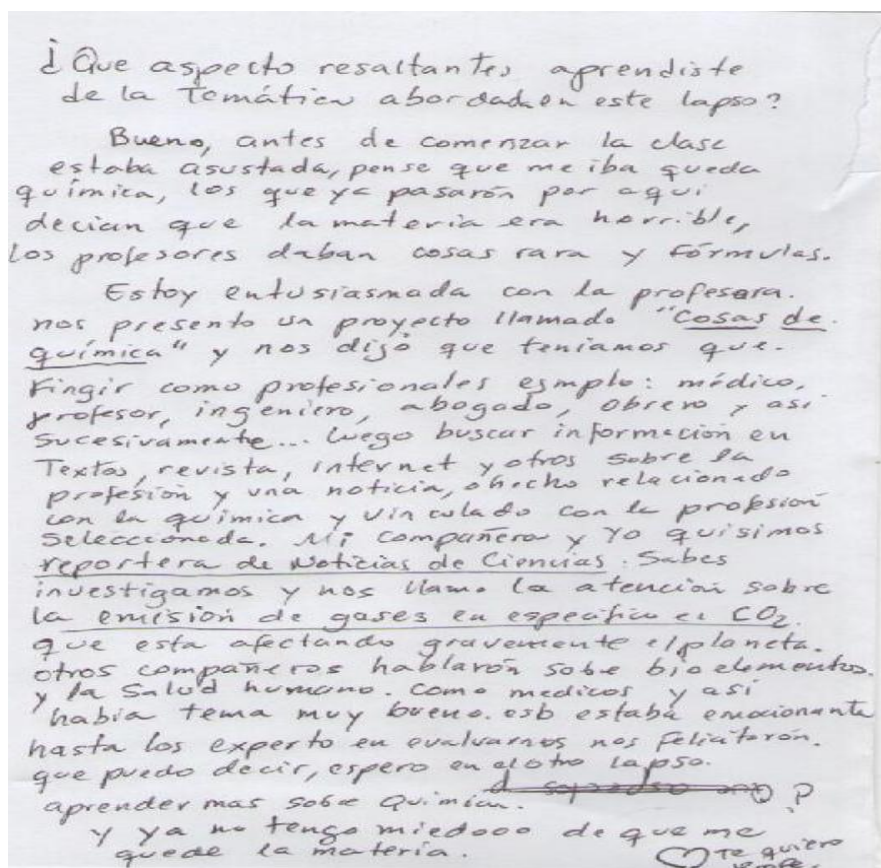 ¿Que aspecto resaltantes aprendiste
de la Temática abordada en este lapso?
Bueno, antes de comenzar la clase
estaba asustada, pense que me iba queda
química, los que ya pasarón por aqui
decian que la materia era horrible,
los profesores daban cosas rara y fórmulas.
Estoy entusiasmada con la profesora.
nos presento un proyecto llamado "Cosas de
química" y nos dijó que teniamos que.
Fingir como profesionales esmplo: médico,
profesor, ingeniero, abogado, obrero y asi
sucesivamente... luego buscar información en
Textos, revista, internet y otros sobre la
profesión y una noticia, o hecho relacionado
con la química y vinculado con la profesión
seleccionada. Mi compañera y yo quisimos
reportera de Noticias de Ciencias. Sabes
investigamos y nos llamo la atención sobre
la emisión de gases en especifico el CO₂.
que esta afectando gravemente el planeta.
otros compañeros hablarón sobre bioelementos.
y la Salud humano. como medicos y así
habia tema muy bueno. esb estaba emocionante
hasta los experto en evaluarnos nos felicitarón.
que puedo decir, espero en el otro lapso.
aprender mas sobre Química. ?
y ya no tengo miedooo de que me
quede la materia. Te quiero